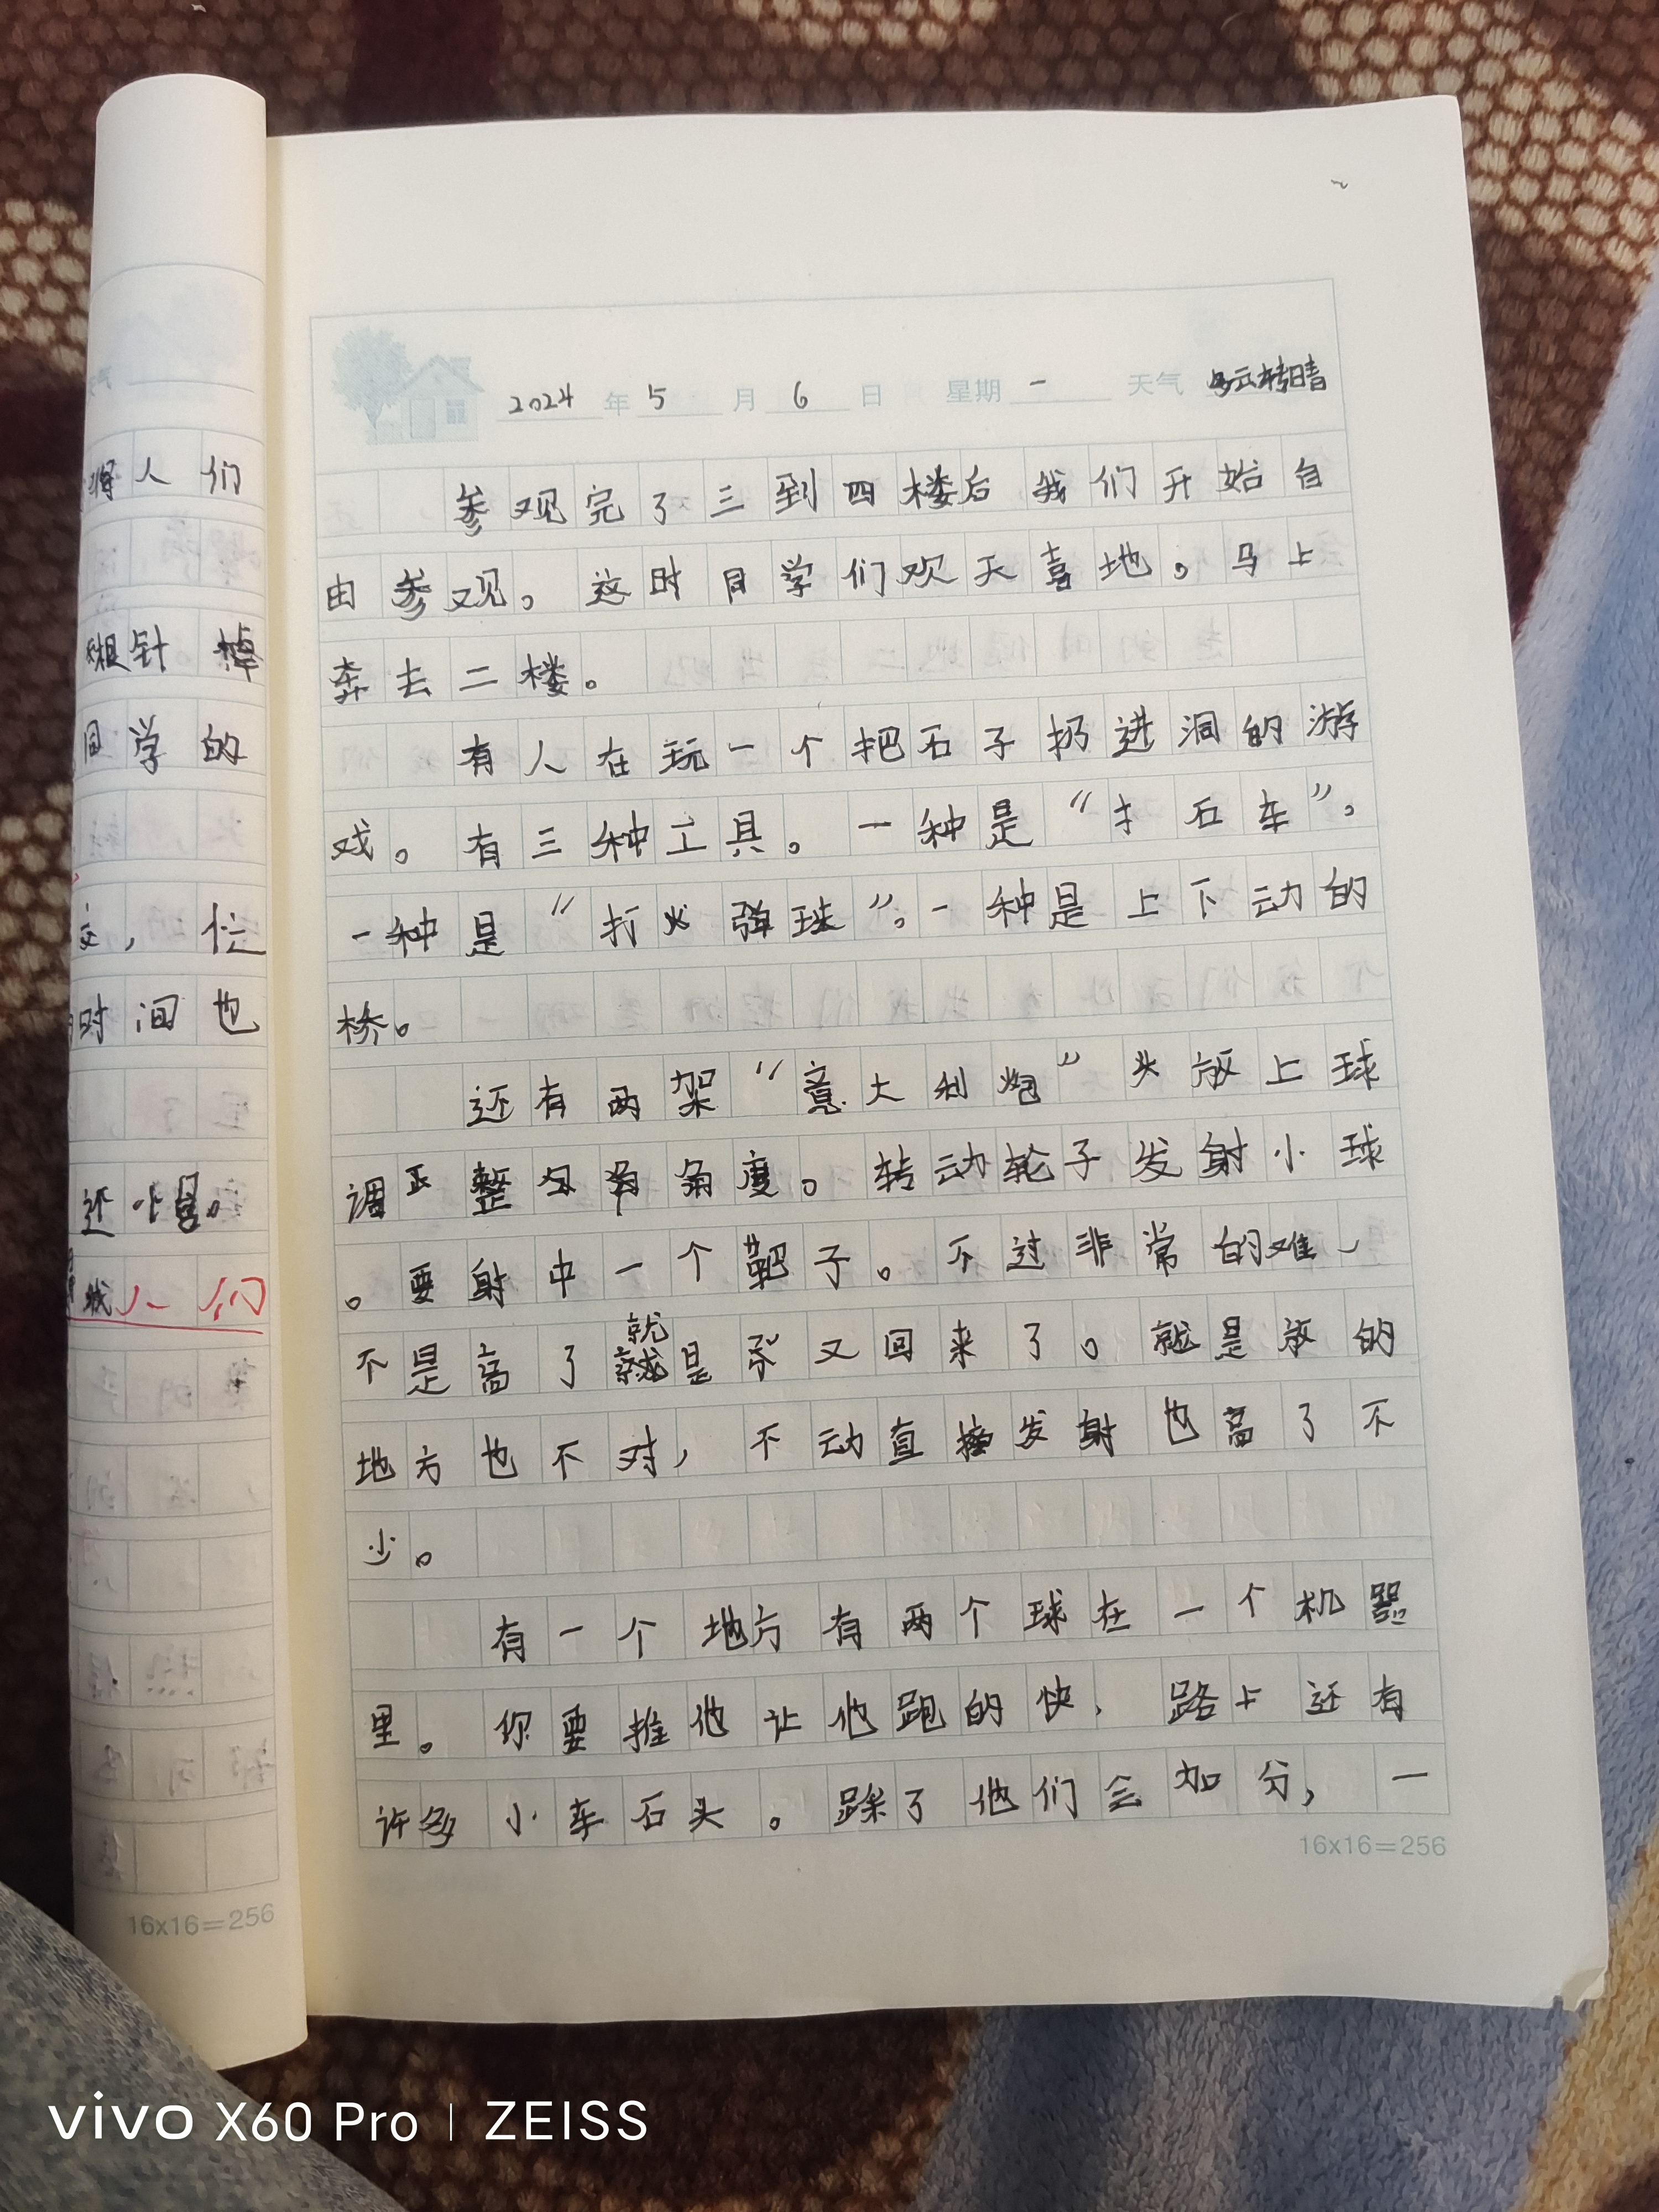 2024 年 5 月 6 日 星期 一 天气 多云转晴
参观完了三到四楼后我们开始自
由参观。这时同学们欢天喜地。马上
奔去二楼。
有人在玩一个把石子扔进洞的游
戏。有三种工具。一种是“扌石车”。
一种是“打火弹球”。一种是上下动的
桥。
还有两架“意大利炮”头放上球
调正整角度。转动轮子发射小球
。要射中一个靶子。不过非常的难、
不是高了就是又回来了。就是放的
地方也不对，不动直接发射也高了不
少。
有一个地方有两个球在一个机器
里。你要推他让他跑的快、路上还有
许多小车石头。踩了他们会加分，一
16x16=256
人们
针掉
同学的
，忙
时间也
还
我人们
16x16=256
vivo X60 Pro | ZEISS